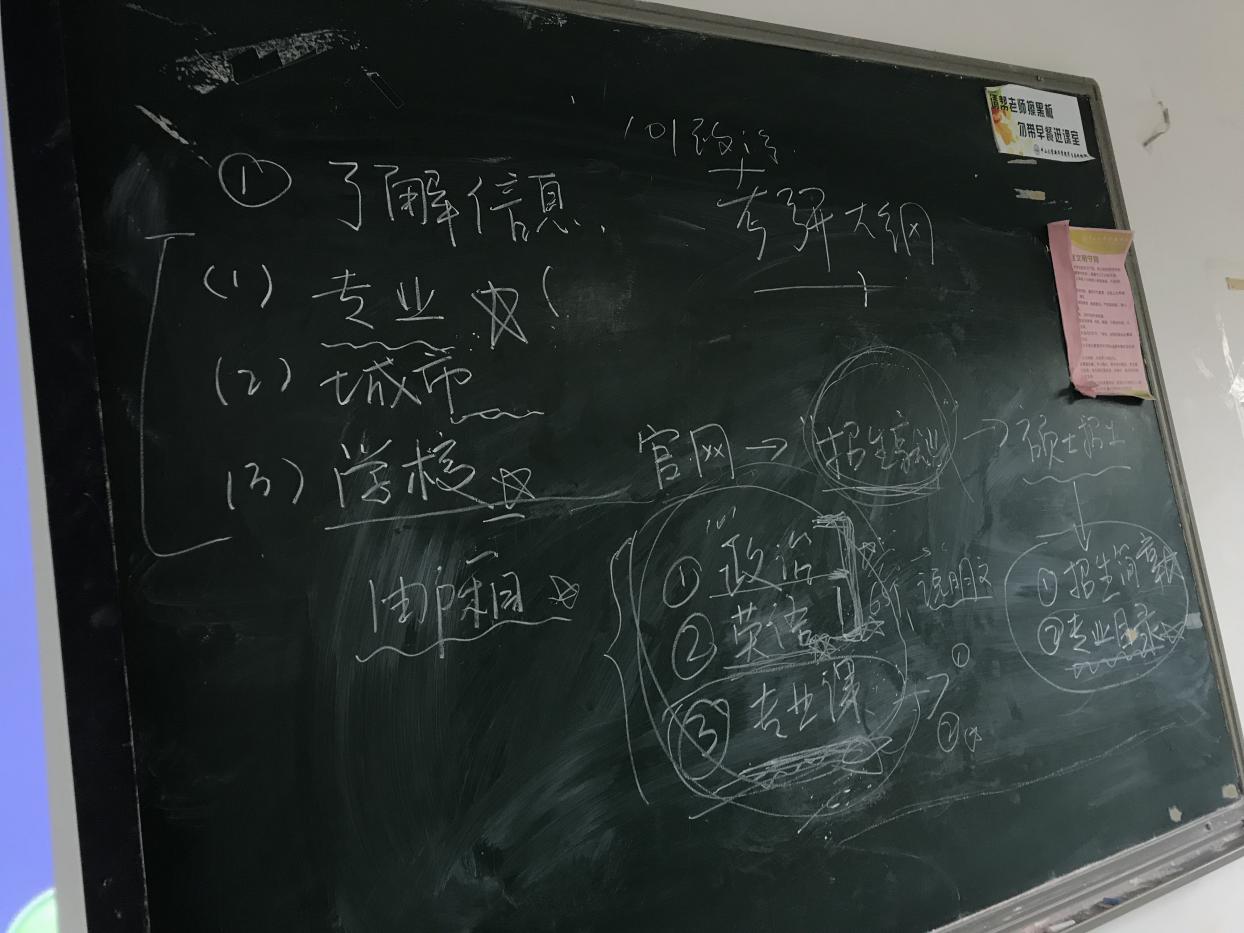 请帮老师擦黑板
勿带早餐进课室
101政治
考研大纲
① 了解信息
(1) 专业
(2) 城市
(3) 学校
官网 → 招生就业 → 硕士招生
① 招生简章
② 专业目录
① 政治
② 英语
③ 专业课
说明
①
②